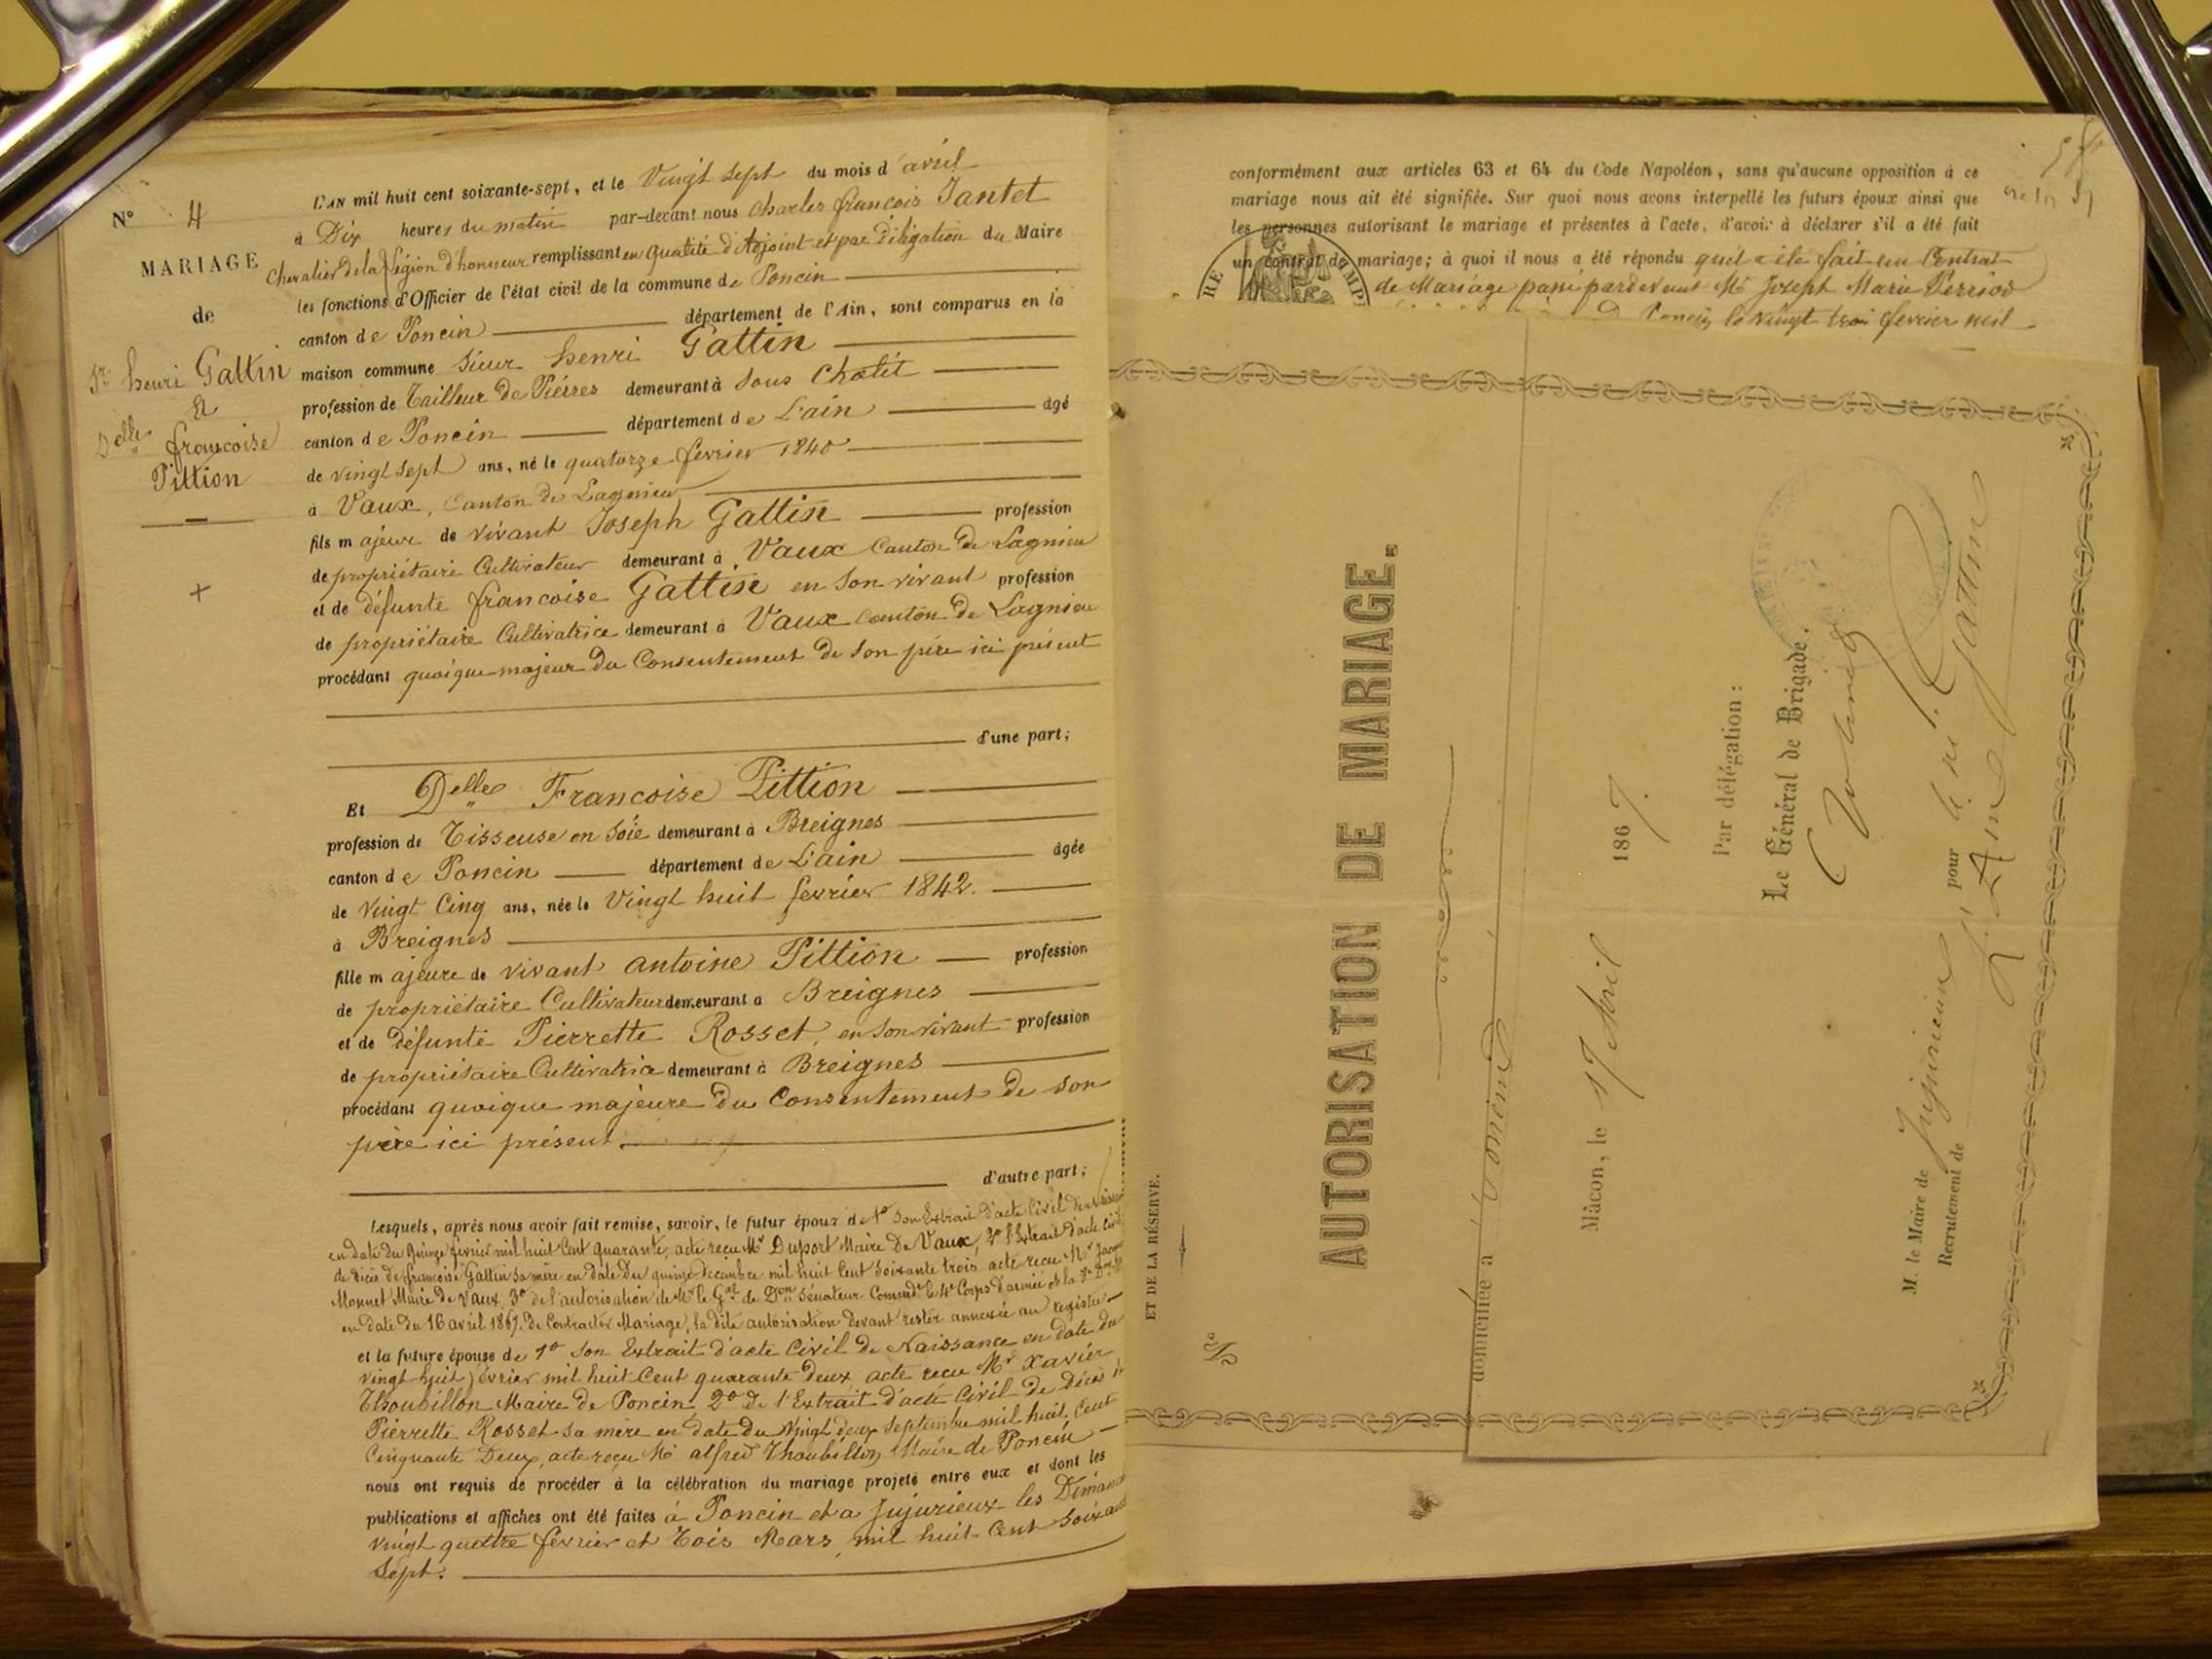 N° 4
MARIAGE
de
Sr. henri Gattin
Et
Delle francoise
Pittion
L'AN mil huit cent soixante-sept, et le Vingt Sept du mois d'avril
à Dix heures du matin par-devant nous Charles francois Jantet
Chevalier de la Légion d'honneur remplissant en Qualité d'Adjoint et par Déligation du Maire
les fonctions d'Officier de l'état civil de la commune de Poncin
canton de Poncin département de l'Ain, sont comparus en la
maison commune Sieur henri Gattin
profession de Tailleur de Pièrres demeurant à Sous Chatet
canton de Poncin département de L'ain âgé
de vingt sept ans, né le quatorze fevrier 1840
à Vaux, Canton de Lagnieu
fils majeur de vivant Joseph Gattin profession
de propriétaire Cultivateur demeurant à Vaux Canton de Lagnieu
et de défunte francoise Gattin en son vivant profession
de propriétaire Cultivatrice demeurant à Vaux canton de Lagnieu
procédant quoique majeur du Consentement de son père ici présent
d'une part;
Et Delle Francoise Pittion
profession de Tisseuse en Soie demeurant à Breignes
canton de Poncin département de L'ain âgée
de Vingt Cinq ans, née le Vingt huit fevrier 1842.
à Breignes
fille majeure de vivant antoine Pittion profession
de propriétaire Cultivateur demeurant à Breignes
et de défunte Pierrette Rosset, en son vivant profession
de propriétaire Cultivatrice demeurant à Breignes
procédant quoique majeure du Consentement de son
père ici présent.
d'autre part;
Lesquels, après nous avoir fait remise, savoir, le futur époux de 1° Son Extrait d'acte Civil de
en date du quinze fevrier mil huit Cent quarante, acte reçu Mr Duport Maire De Vaux, 2° l'Extrait d'acte civil
de décès de francoise Gattin sa mère en date du quinze decembre mil huit Cent Soixante trois acte recu Mr
Monnet Maire de Vaux, 3° de l'autorisation de Mr le Gal de Don Sénateur Commdt le 4e Corps d'armée et la
en date du 16 avril 1867. De Contracter Mariage, la dite autorisation devant rester annexée au registre
et la future épouse de 1° Son Extrait d'acte Civil de Naissance en date du
vingt huit fevrier mil huit Cent quarante deux acte recu Mr Xavier
Thoubillon Maire de Poncin 2° De l'Extrait d'acte Civil de décès de
Pierrette Rosset sa mère en date du Vingt deux Septembre mil huit Cent
Cinquante Deux, acte reçu Mr alfred Thoubillon Maire de Poncin
nous ont requis de procéder à la célébration du mariage projeté entre eux et dont les
publications et affiches ont été faites à Poncin et à Jujurieux les
vingt quattre février et Tois Mars, mil huit Cent
Sept.
conformément aux articles 63 et 64 du Code Napoléon, sans qu'aucune opposition à ce
mariage nous ait été signifiée. Sur quoi nous avons interpellé les futurs époux ainsi que
les personnes autorisant le mariage et présentes à l'acte, d'avoir à déclarer s'il a été fait
un contrat de mariage; à quoi il nous a été répondu qu'il a été fait un Contrat
de Mariage passé pardevant Mr Joseph Marie Perriod
Poncin le vingt trois fevrier mil
ET DE LA RÉSERVE.
N°
AUTORISATION DE MARIAGE.
donnée à
Mâcon, le 17 Avril 1867.
Par délégation :
Le Général de Brigade.
M. le Maire de Jujurieux pour le né Gattin
Recrutement de L'Ain